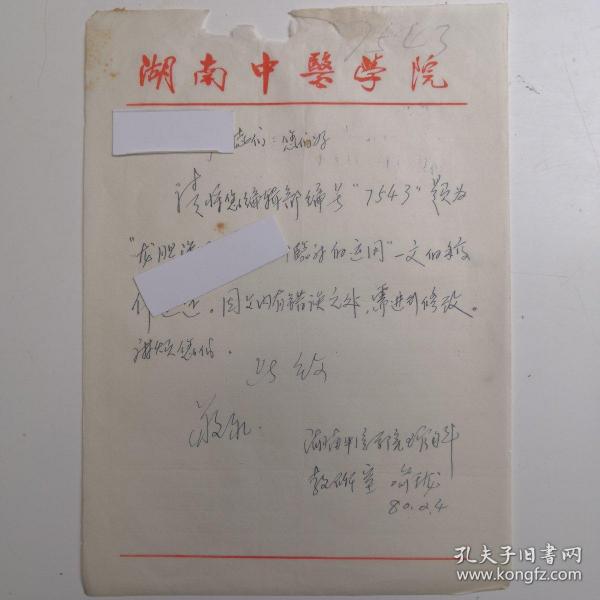 7543
湖南中醫学院
志们：您们好
请将您编辑部编号"7543"题为
"龙胆泻 临床的运用"一文的稿
件退还。因文内有错误之处，需进行修改。
麻烦您们。
此致
敬礼
湖南中医学院
教研室
80.2.4
孔夫子旧书网
www.kongfz.com